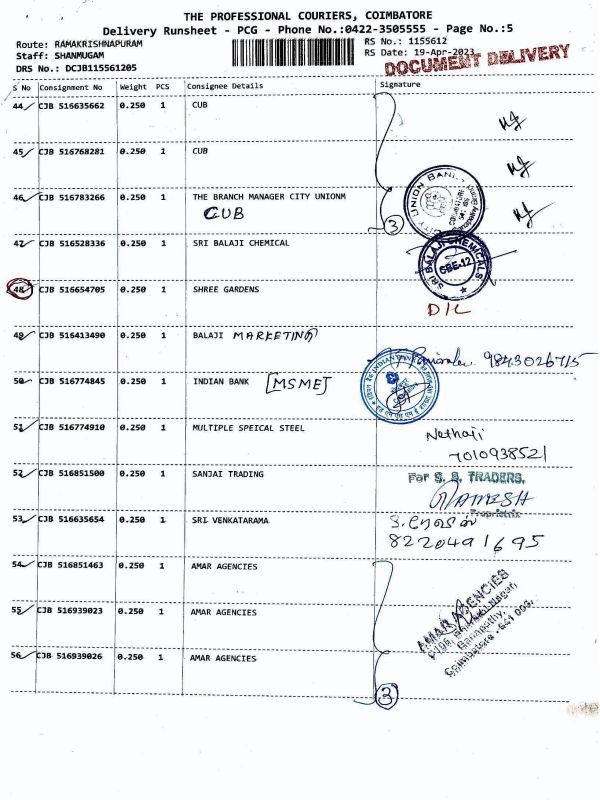 THE PROFESSIONAL COURIERS, COIMBATORE
Delivery Runsheet - PCG - Phone No.:0422-3505555 - Page No.:5
Route: RAMAKRISHNAPURAM
Staff: SHANMUGAM
DRS No.: DCJB115561205
RS No.: 1155612
RS Date: 19-Apr-2023
DOCUMENT DELIVERY
S No Consignment No Weight PCS Consignee Details Signature
44 CJB 516635662 0.250 1 CUB
45 CJB 516768281 0.250 1 CUB
46 CJB 516783266 0.250 1 THE BRANCH MANAGER CITY UNIONM
CUB
3
47 CJB 516528336 0.250 1 SRI BALAJI CHEMICAL
SRI BALAJI CHEMICALS
CBE-12
48 CJB 516654705 0.250 1 SHREE GARDENS
D/L
49 CJB 516413490 0.250 1 BALAJI MARKETING
9843026715
50 CJB 516774845 0.250 1 INDIAN BANK [MSME]
INDIAN BANK
51 CJB 516774910 0.250 1 MULTIPLE SPEICAL STEEL
Nethaji
7010938521
52 CJB 516851500 0.250 1 SANJAI TRADING
For S. S. TRADERS,
RAMESH
Proprietrix
53 CJB 516635654 0.250 1 SRI VENKATARAMA
8220491695
54 CJB 516851463 0.250 1 AMAR AGENCIES
55 CJB 516939023 0.250 1 AMAR AGENCIES
AMAR AGENCIES
Ganapathy,
Coimbatore - 641 006.
56 CJB 516939026 0.250 1 AMAR AGENCIES
3